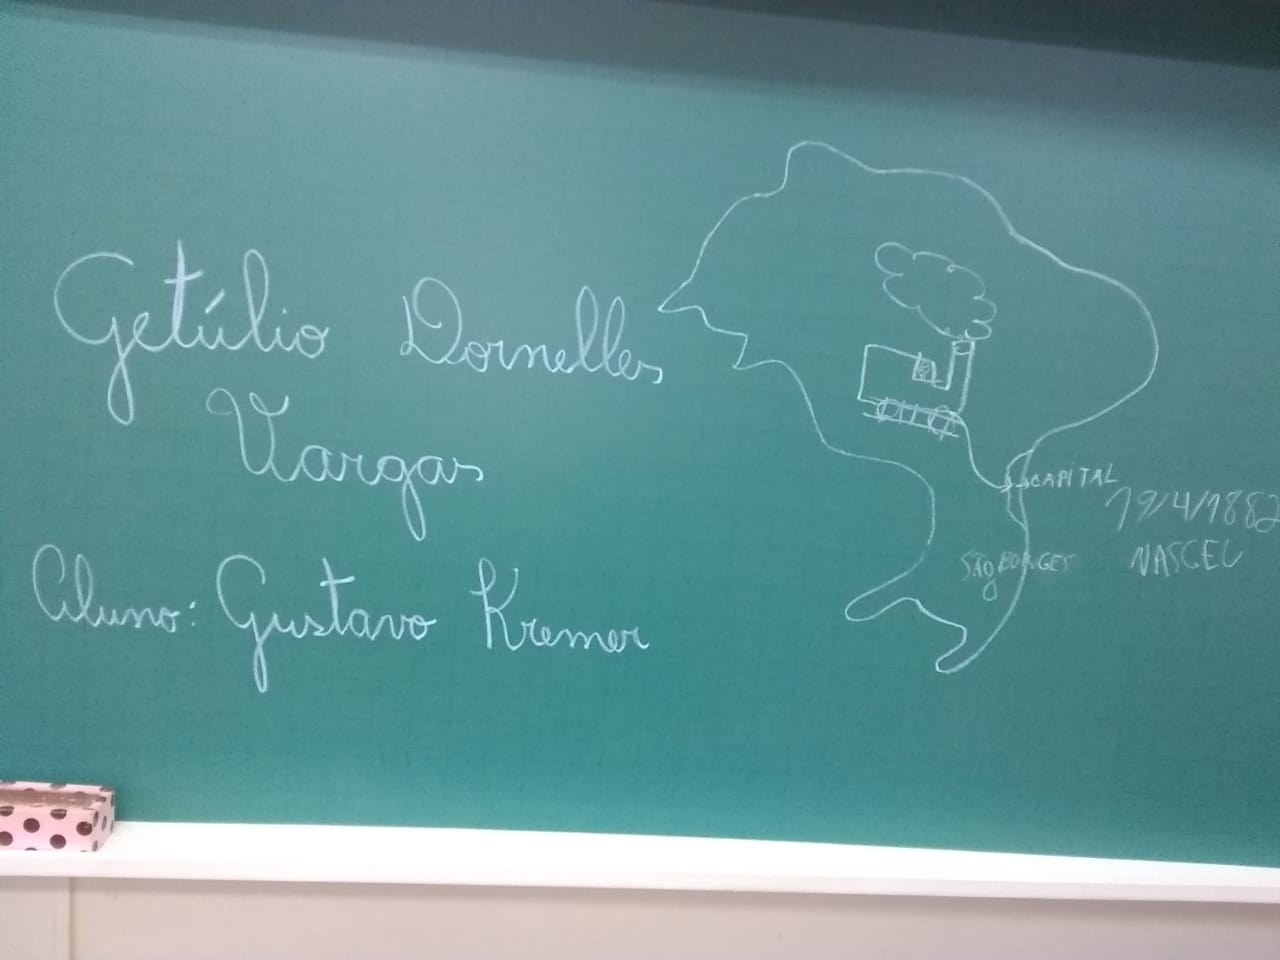 Getúlio Dornelles
Vargas
Aluno: Gustavo Kremer
CAPITAL
19/4/1882
NASCEU
SÃO BORGES